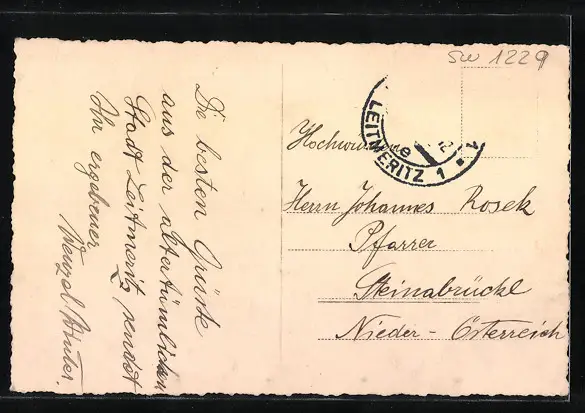 Die besten Grüße
aus der altertümlichen
Stadt Leitmeritz sendet
Ihr ergebener
Wenzel Winter.
SW 1229
LEITMERITZ 1
Herrn Johannes Rosek
Pfarrer
Steinabrückl
Nieder-Österreich